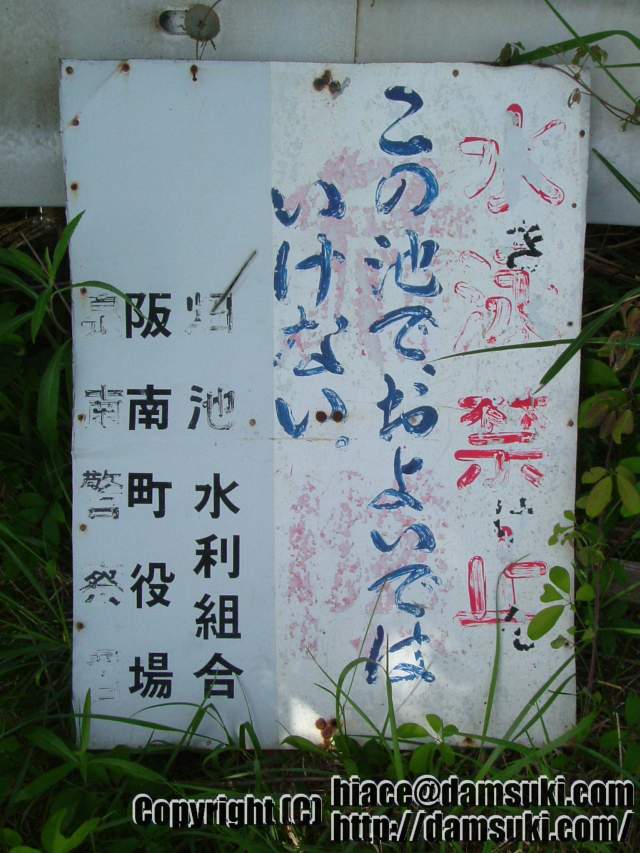 水泳禁止
この池で、およいでは
いけない。
池水利組合
阪南町役場
泉南警察署
Copyright (C) hiace@damsuki.com
http://damsuki.com/